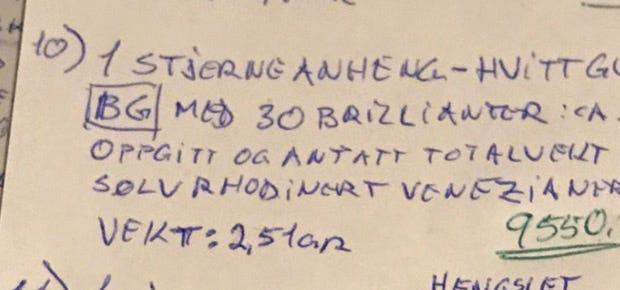 10) 1 STJERNEANHENG-HVITTGU
BG MED 30 BRILLIANTER: CA.
OPPGITT OG ANTATT TOTALVEKT
SØLVRHODINERT VENEZIANER
VEKT: 2,51GR 9550.
HENGSLET